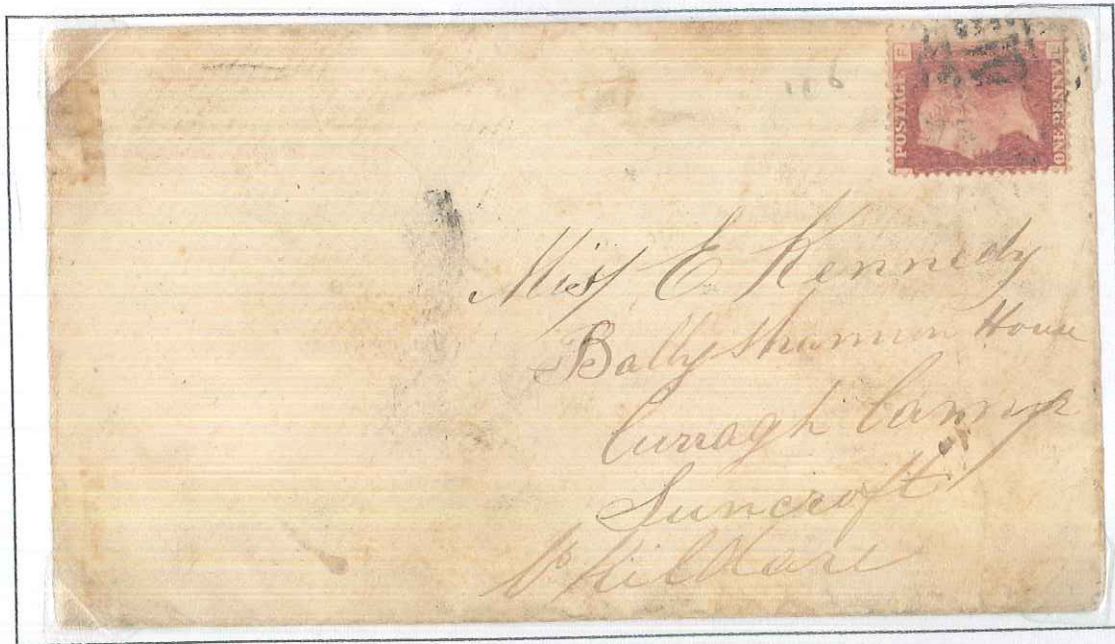 POSTAGE
ONE PENNY
Miss E Kennedy
Ballyshannon House
Curragh Camp
Suncroft
Co Kildare